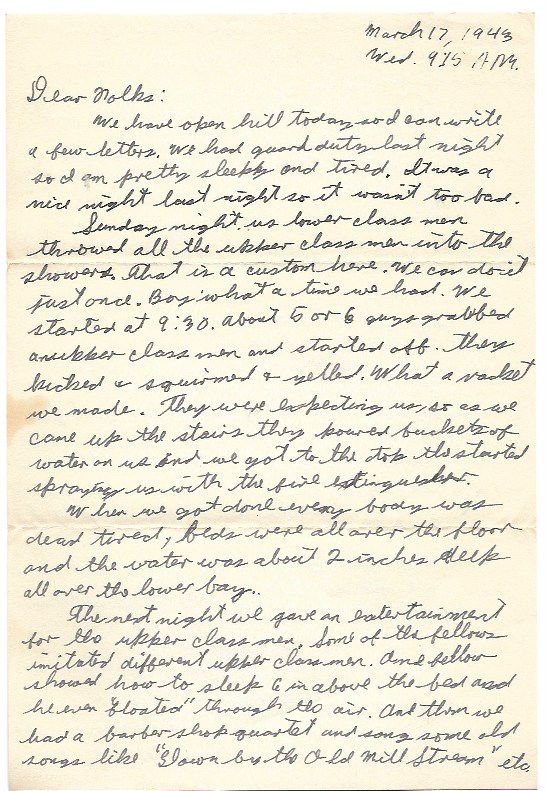 March 17, 1943
Wed. 915 A.M.
Dear Folks:
We have open hill today so I can write
a few letters. We had guard duty last night
so I am pretty sleepy and tired. It was a
nice night last night so it wasn't too bad.
Sunday night us lower class men
throwed all the upper class men into the
showers. That is a custom here. We can do it
just once. Boy what a time we had. We
started at 9:30. about 5 or 6 guys grabbed
an upper class men and started off. They
kicked & squirmed & yelled. What a racket
we made. They were expecting us, so as we
came up the stairs they poured buckets of
water on us and we got to the top the started
spraying us with the fire extinguisher.
When we got done every body was
dead tired, beds were all over the floor
and the water was about 2 inches deep
all over the lower bay..
The next night we gave an entertainment
for the upper class men. Some of the fellows
imitated different upper class men. One fellow
showed how to sleep 6 in above the bed and
he even "floated" through the air. And then we
had a barber shop quartet and sang some old
songs like "Down by the Old Mill Stream" etc.